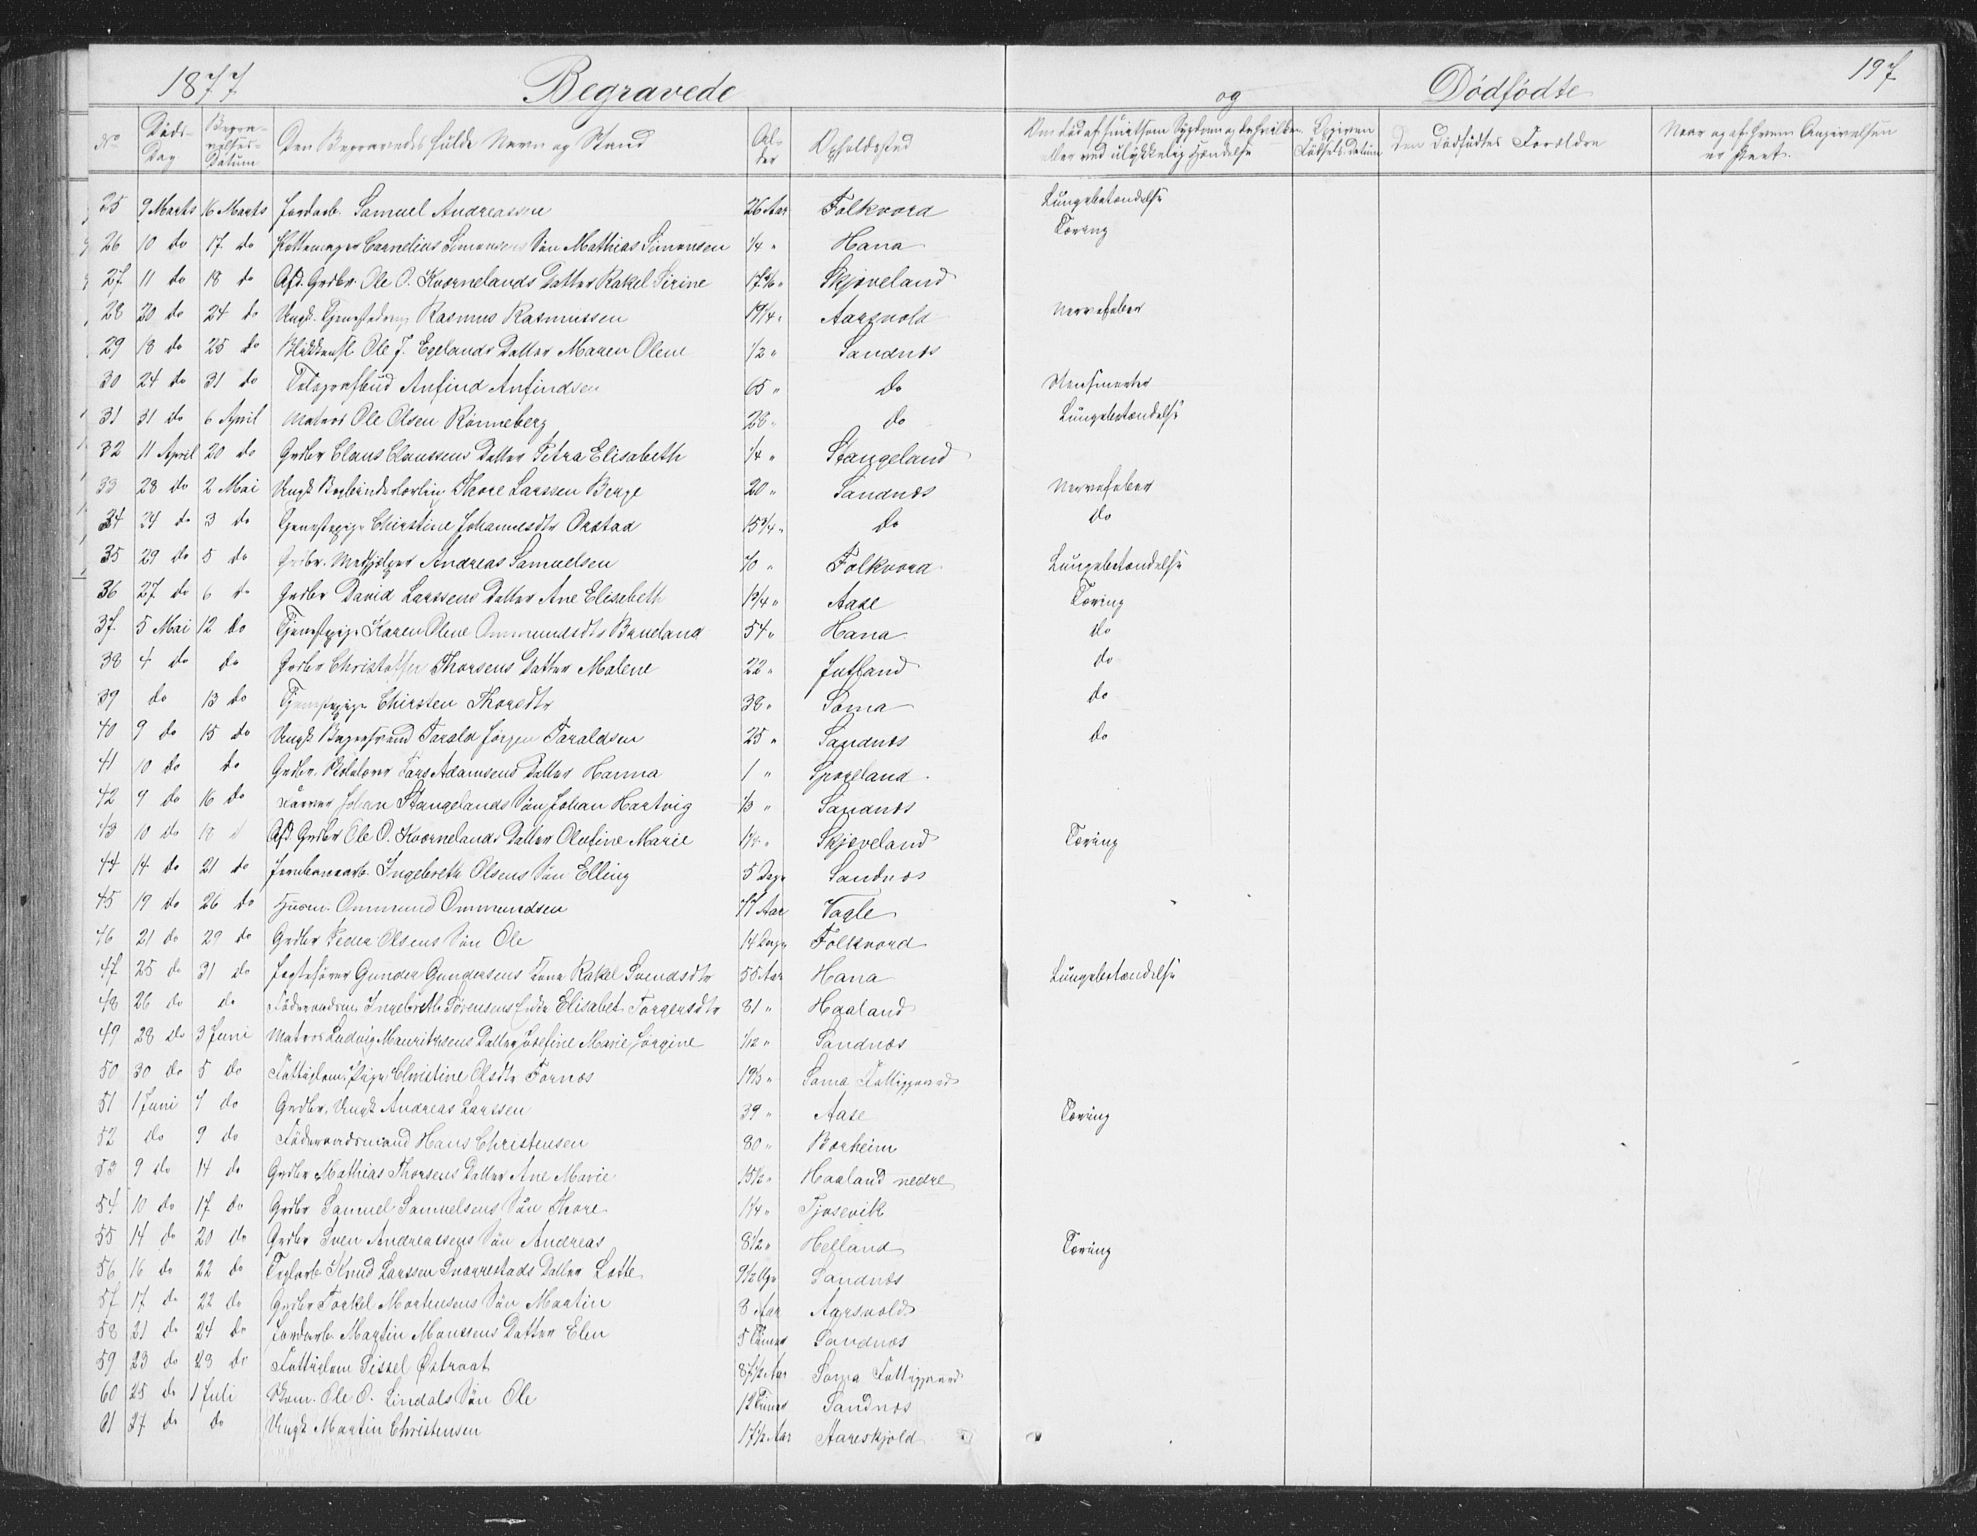 1877 Begravede og Dødfødte 197
No Døds-Dag Begravelses-Datum Den Begravedes fulde Navn og Stand Alder Opholdssted Opgiven Fødsels-Datum Den Dødfødtes Forældre Naar og af hvem Angivelsen er skeet.
25 9 Marts 16 Marts Jordarb. Samuel Andreassen 26 Aar Folkvord Lungebetændelse
26 10 do 17 do Pottemager Cornelius Simonsens Søn Mathias Simonsen 1/4 " Hana Tæring
27 11 do 18 do Afd. Grdbr. Ole O. Kvernelands Datter Rakel Sirine Skjæveland
28 20 do 24 do Ungk. Tjenestedreng Rasmus Rasmussen 19 1/4 " Aarsvold Nervefeber
29 18 do 25 do Ole J. Egelands Datter Maren Olene 1/2 " Sandnes
30 24 do 31 do Telegrafbud Anfind Anfindsen 65 " do
31 31 do 6 April Matros Ole Olsen Rønneberg 28 " do Lungebetændelse
32 11 April 20 do Grdbr Claus Claussens Datter Petra Elisabeth 1/4 " Stangeland
33 28 do 2 Mai Ungk Thore Larssen Berge 20 " Sandnes Nervefeber
34 24 do 3 do Tjenestepige Chirstine Johannesdtr Orstad 15 3/4 " do do
35 29 do 5 do Grdbr. Medhjelper Andreas Samuelsen 70 " Folkvord Lungebetændelse
36 27 do 6 do Grdbr David Larssens Datter Ane Elisabeth Aase Tæring
37 5 Mai 12 do Tjenestepige Karen Olene Ommundsdtr Buneland 54 " Hana do
38 4 do do Grdbr Christoffer Thorsens Datter Malene 22 " Jutland do
39 do 13 do Tjenestepige Chirsten Thorsdtr 38 " Soma do
40 9 do 15 do Ungk Tarald Jørgen Taraldsen 25 " Sandnes do
41 10 do do Grdbr. Lars Adamsens Datter Hanna 1 " Sporeland
42 9 do 16 do Farver Johan Stangelands Søn Johan Hartvig 1/3 " Sandnes
43 10 do 18 " Afd. Grdbr Ole O. Kvernelands Datter Olufine Marie Skjæveland Tæring
44 14 do 21 do Jernbanearb. Ingebreth Olsens Søn Elling 5 Dage Sandnes
45 19 do 26 do Husm. Ommund Ommundsen 77 Aar Vagle
46 21 do 29 do Grdbr Peder Olsens Søn Ole 14 Dage Folkvord
47 25 do 31 do Jagtefører Gunder Gundersens Kone Rakel Svendsdtr 55 Aar Hana Lungebetændelse
48 26 do do Føderaadsm. Ingebreth Sørensens Enke Elisabet Torgersdtr 81 " Haaland
49 28 do 3 Juni Matros Ludvig Mauritzsens Datter Josefine Marie Jørgine 1/12 " Sandnes
50 30 do 5 do Fattiglem, Pige Christine Olsdtr Fornes 19 1/3 " Soma Fattiggaard
51 1 Juni 7 do Grdbr. Ungk Andreas Larssen 39 " Aase Tæring
52 do 9 do Føderaadsmand Hans Christensen 80 " Bærheim
53 9 do 14 do Grdbr Mathias Thorsens Datter Ane Marie 15 1/2 " Haaland nedre
54 10 do 17 do Grdbr Samuel Samuelsens Søn Thore 1 1/4 " Tjosevik
55 14 do 20 do Grdbr Sven Andreassens Søn Andreas 8 1/2 " Helland Tæring
56 16 do 22 do Teglarb Knud Larssen Snorrestads Datter Lotte 9 1/2 Uge Sandnes
57 17 do 22 do Grdbr Torkel Mortensens Søn Martin 8 Aar Aarsvold
58 21 do 24 do Jordarb. Martin Monssens Datter Elen 5 Timer Sandnes
59 23 do 23 do Fattiglem Sissel Østraat 87 1/2 Aar Soma Fattiggaard
60 25 do 1 Juli Ole O. Lindals Søn Ole 12 Timer Sandnes
61 27 do do Ungk Martin Christensen 17 1/2 Aar Aareskjold